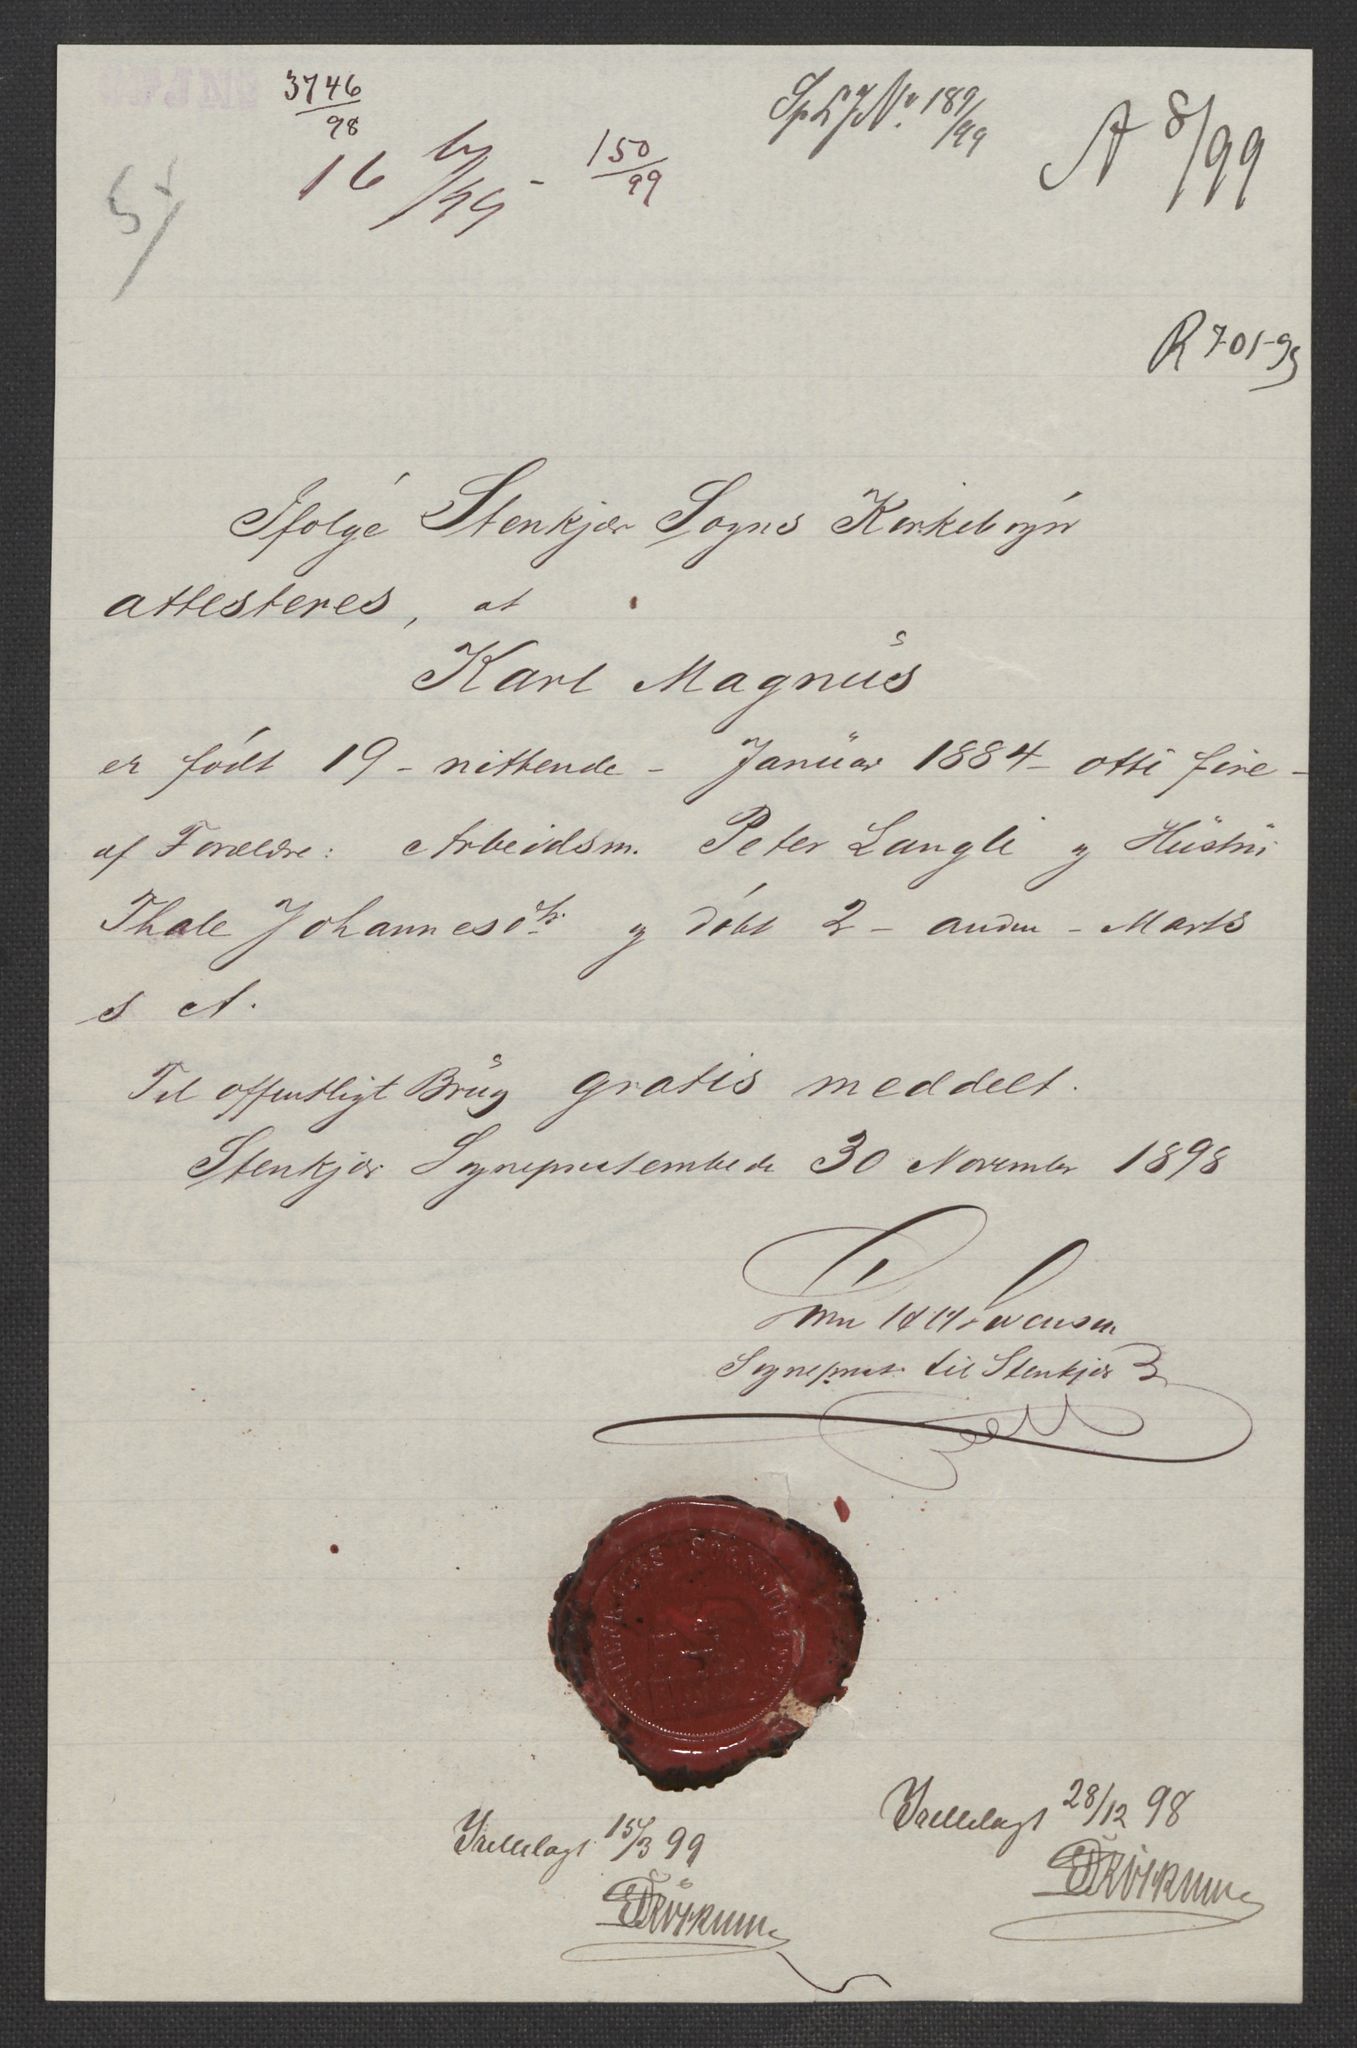 3746
98
16 /99 - 150
99
189/99
A 8/99
R 701-99
Ifølge Stenkjær Sogns Kirkebog
attesteres, at
Karl Magnus
er født 19 - nittende - Januar 1884 - otti fire -
af Forældre: Arbeidsm. Peter Langli og Hustru
Thale Johannesdtr. og døbt 2 - anden - Marts
s A.
Til offentligt Brug gratis meddelt.
Stenkjær Sogneprestembede 30 November 1898
Sogneprest til Stenkjær
Fremlagt 28/12 98
Fremlagt 15/3 99